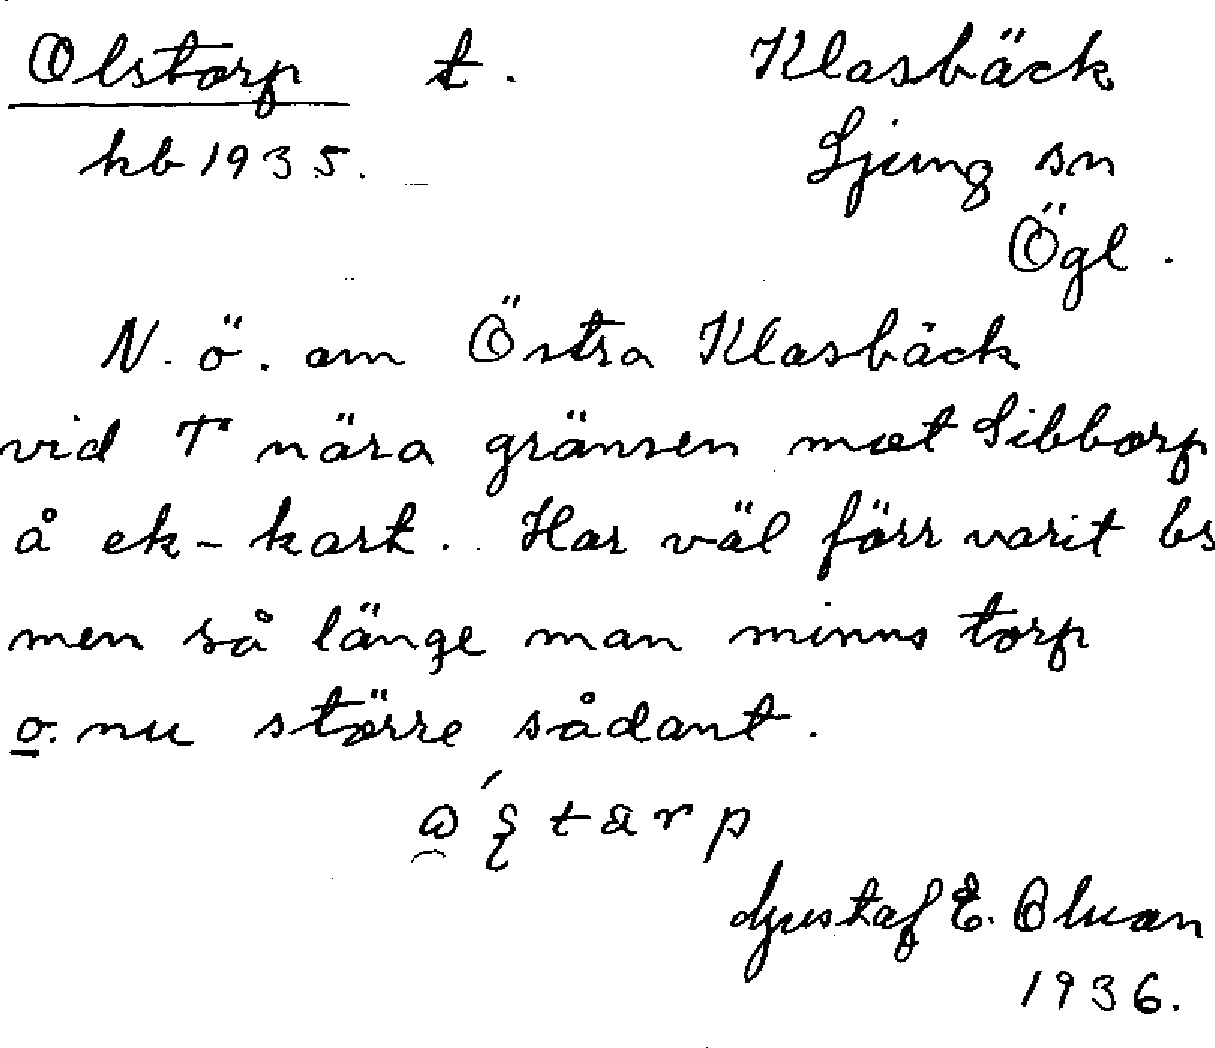 Olstorp t. Klasbäck
kb 1935. Ljung sn
Ögl.
N. ö. om Östra Klasbäck
vid T nära gränsen mot Sibborp
å ek-kart. Har väl förr varit bs
men så länge man minns torp
o. nu större sådant.
Gustaf E. Olson
1936.